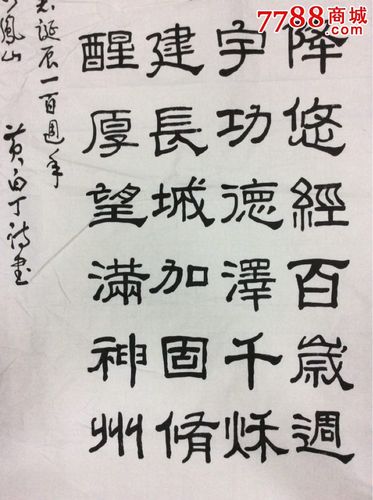 降悠經百歲週
宇功德澤千秌
建長城加固脩
醒厚望滿神州
誕辰一百週年
鳳山 黄白丁诗書
7788商城